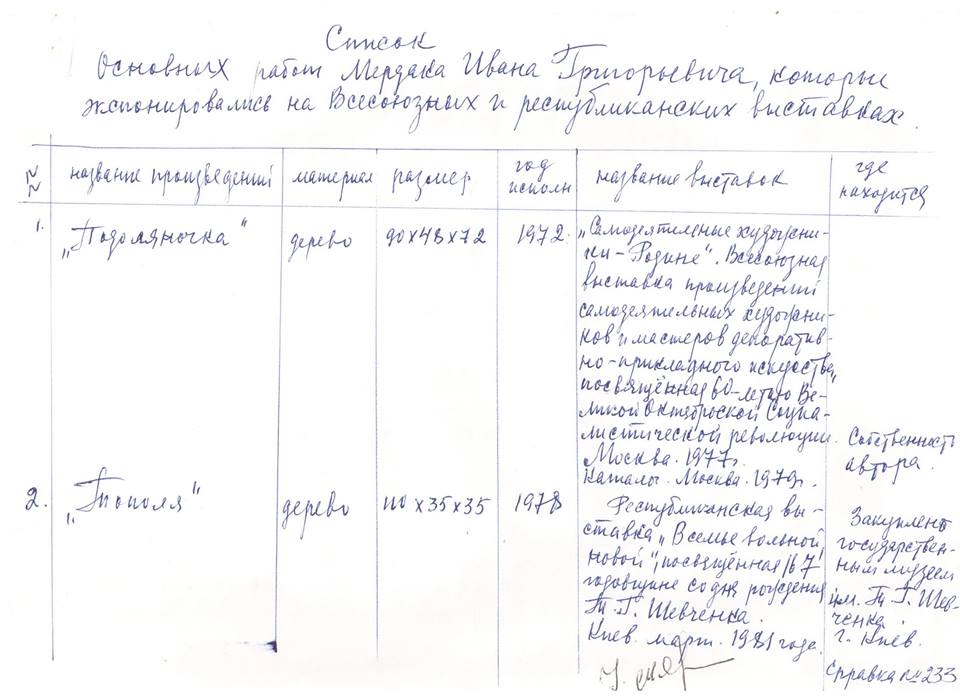 Список
Основных работ Мердака Ивана Григорьевича, которые
экспонировались на Всесоюзных и республиканских выставках.
№№ название произведений материал размер год исполн название выставок где находится
1. „Подоляночка" дерево 90х48х72 1972.
„Самодеятельные художни-
ки – Родине". Всесоюзная
выставка произведений
самодеятельных художни-
ков и мастеров декоратив-
но-прикладного искусства,
посвящённая 60-летию Ве-
ликой Октябрьской Социа-
листической революции.
Москва. 1977г.
Каталог. Москва. 1979г.
Собственность
автора.
2. „Тополя" дерево 110х35х35 1978
Республиканская вы-
ставка „В семье вольной,
новой", посвящённая 167
годовщине со дня рождения
Т. Г. Шевченка.
Киев. март. 1981 года.
Закуплено
государствен-
ным музеем
им. Т. Г. Шев-
ченка.
г. Киев.
Справка №233